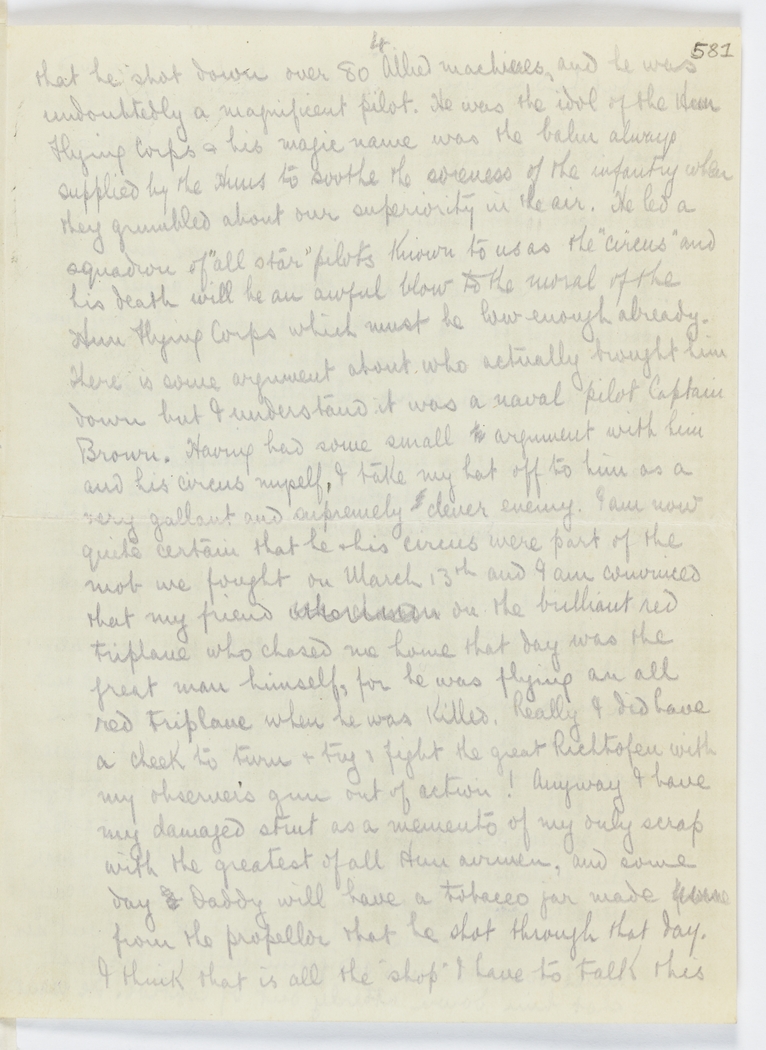 4.
581
that he shot down over 80 Allied machines, and he was
undoubtedly a magnificent pilot. He was the idol of the Hun
Flying Corps & his magic name was the balm always
supplied by the Huns to soothe the soreness of the infantry when
they grumbled about our superiority in the air. He led a
squadron of "all star" pilots known to us as the "circus" and
his death will be an awful blow to the moral of the
Hun Flying Corps which must be low enough already.
There is some argument about who actually brought him
down but I understand it was a naval pilot Captain
Brown. Having had some small argument with him
and his circus myself, I take my hat off to him as a
very gallant and supremely clever enemy. I am now
quite certain that he & his circus were part of the
mob we fought on March 13th and I am convinced
that my friend on the brilliant red
triplane who chased me home that day was the
great man himself, for he was flying an all
red triplane when he was killed. Really I did have
a cheek to turn & try & fight the great Richthofen with
my observer's gun out of action! Anyway I have
my damaged strut as a memento of my only scrap
with the greatest of all Hun airmen, and some
day Daddy will have a tobacco jar made
from the propellor that he shot through that day.
I think that is all the "shop" I have to talk this